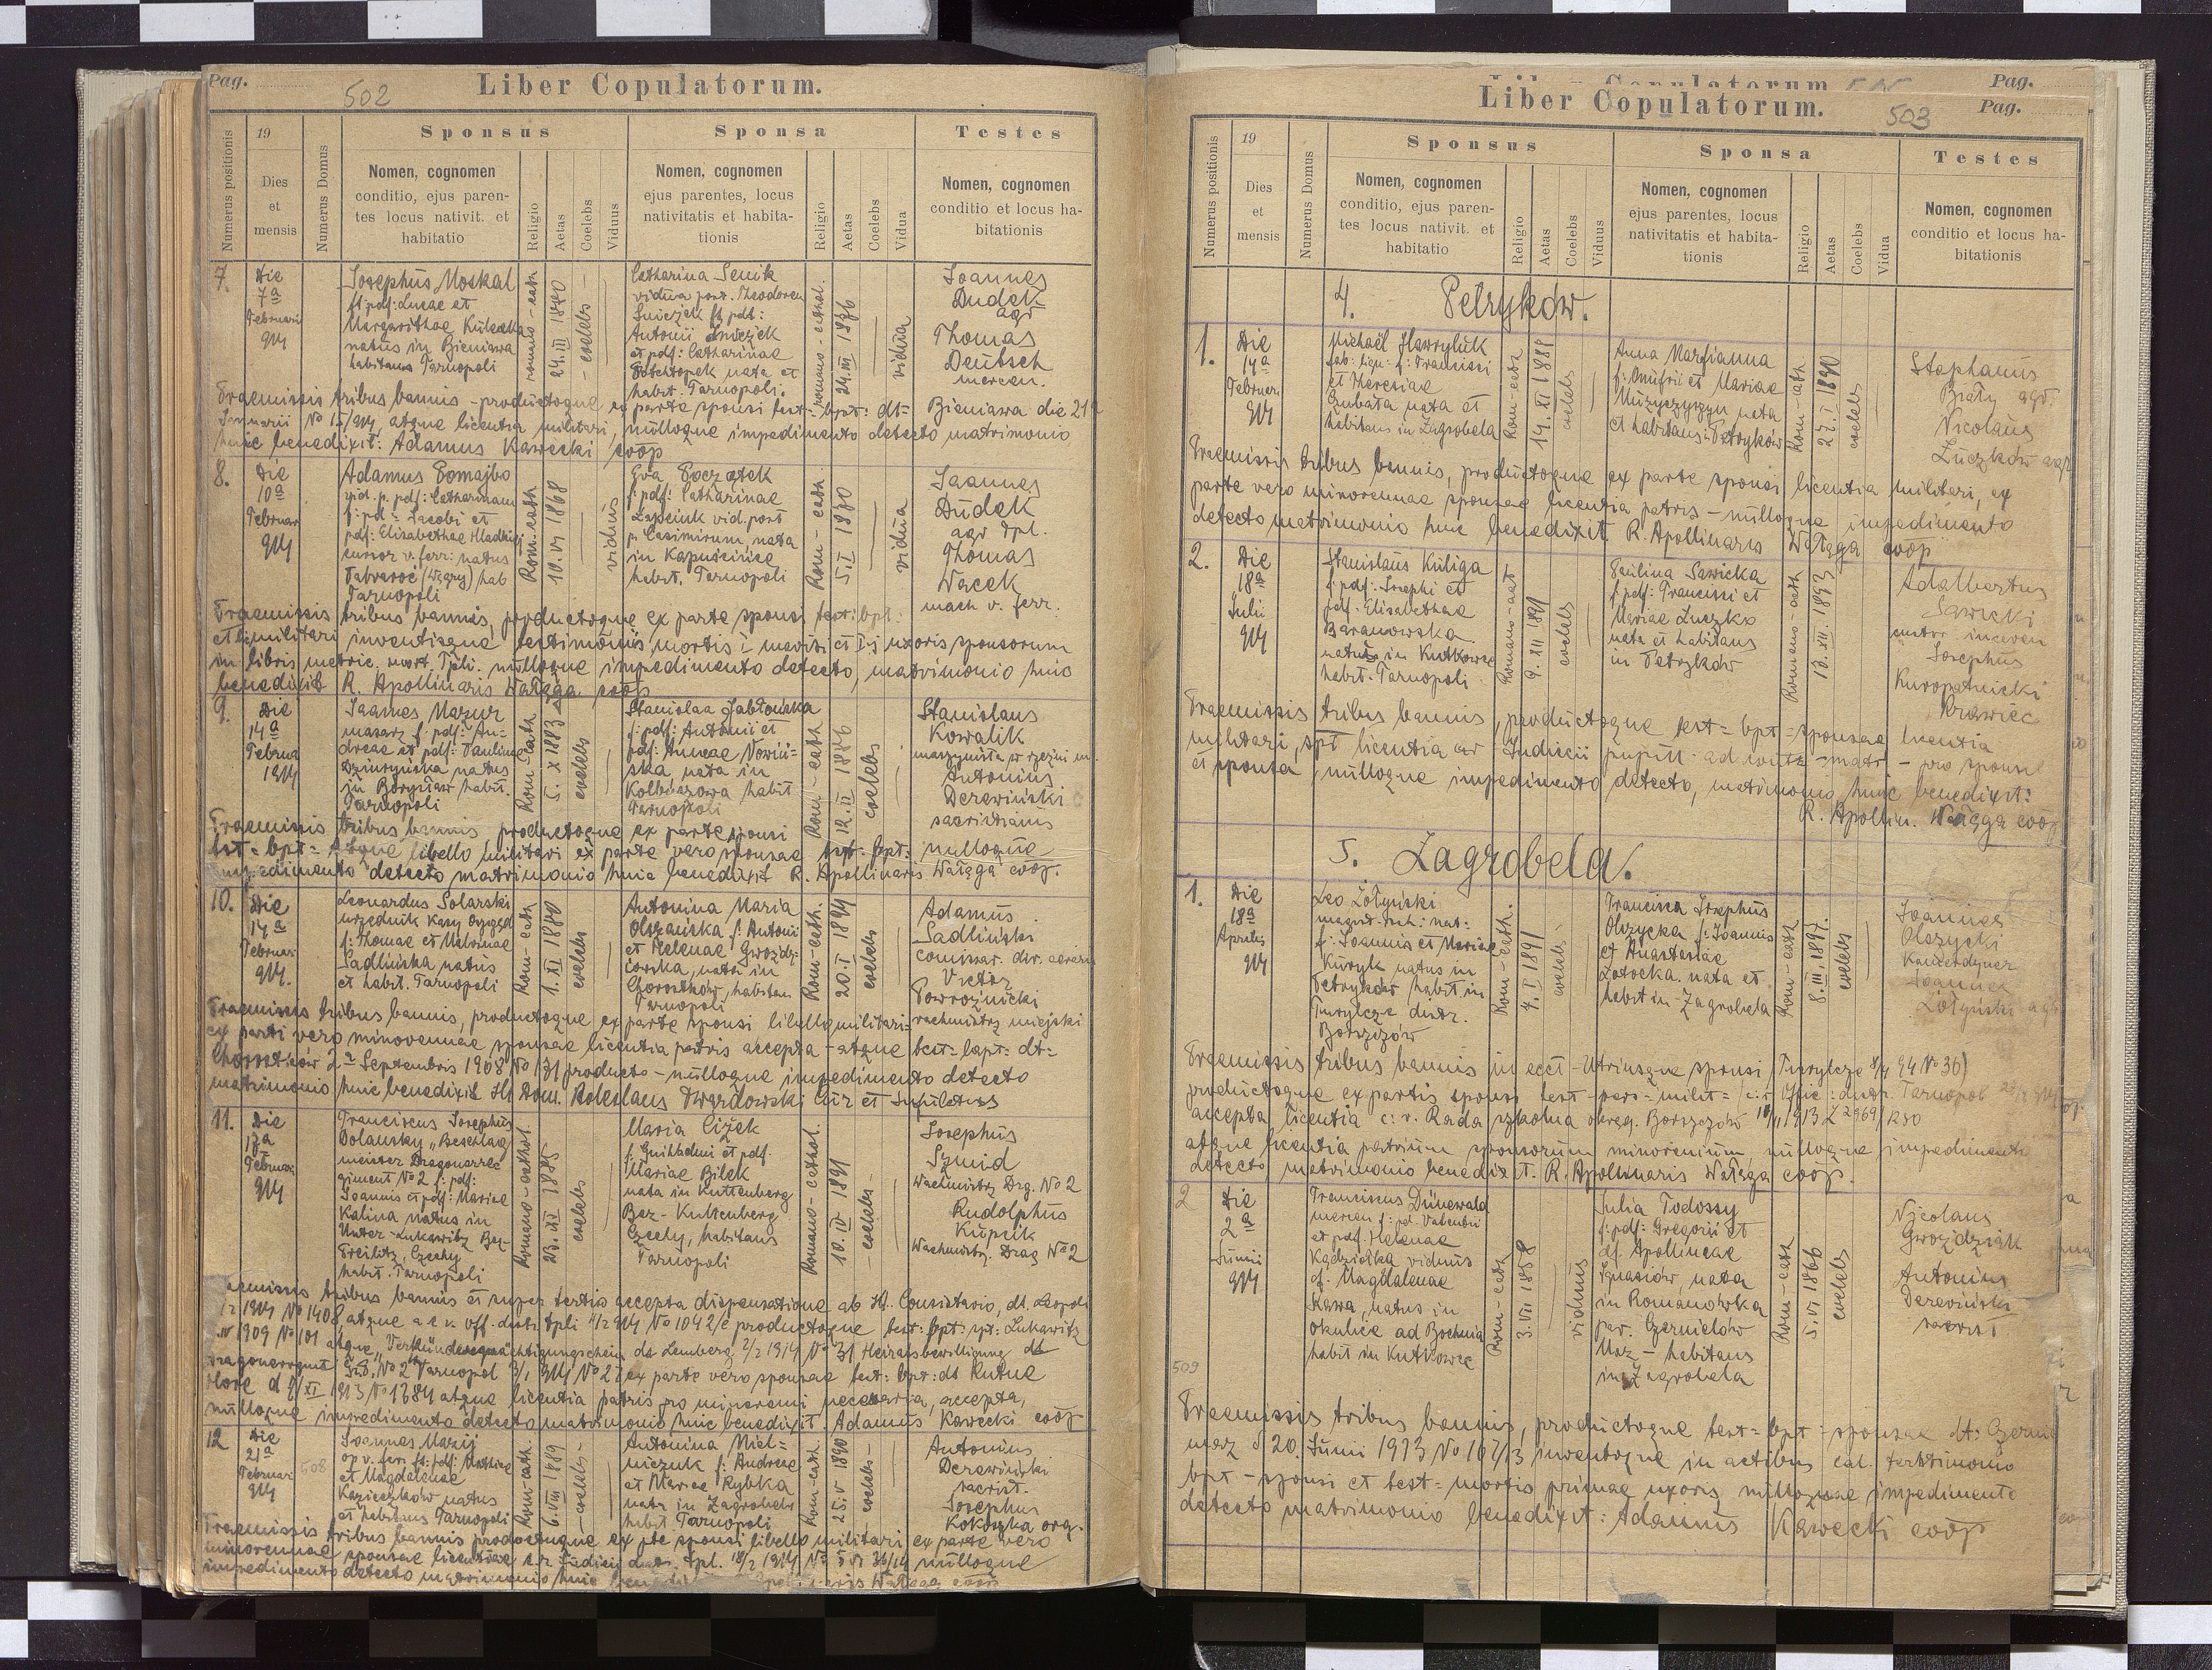 Pag.
502
Liber Copulatorum.
Numerus positionis
19
Dies
et
mensis
Numerus Domus
Sponsus
Nomen, cognomen
conditio, ejus paren-
tes locus nativit. et
habitatio
Religio
Aetas
Coelebs
Viduus
Sponsa
Nomen, cognomen
ejus parentes, locus
nativitatis et habita-
tionis
Religio
Aetas
Coelebs
Vidua
Testes
Nomen, cognomen
conditio et locus ha-
bitationis
7.
Die
7a
Februarii
914
Josephus Moskal
fl: pdf: Lucae et
Margarithae Kulecka
natus in Bieniawa
habitans Tarnopoli
romano-cath
24.III 1870
coelebs
Catharina Senik
vidua post. Theodorem
Antonii
et pdf: Catharinae
nata et
habit. Tarnopoli.
romano-cathol.
24.III 1876
vidua
Joannes
Dudek
agr
Thomas
Deutsch
mercen.
Praemissis tribus bannis - productoque ex parte sponsi test= bpt: dt= Bieniawa die 21a
Januarii No 15/914, atque licentia militari, nulloque impedimento detecto matrimonio
huic benedixit: Adamus Kawecki coop
8.
Die
10a
Februar
914
Adamus Pomajbo
vid. p. pdf: Catharinam
f: pd: Jacobi et
pdf: Elisabethae Hladkij
cursor v. ferr: natus
hab
Tarnopoli
Rom.-cath
10.VI 1868
viduus
Eva Początek
f: pdf: Catharinae
vid. post
p. Casimirum, nata
in Kapuścińce
habit. Tarnopoli
Rom-cath.
5.I 1870
vidua
Joannes
Dudek
agr Tpl.
Thomas
Wacek
mach v. ferr.
Praemissis tribus bannis, productoque ex parte sponsi test: bpt:
et militari inventisque testimoniis mortis i mariti et I-j uxoris sponsorum
in libris metric. mort. Tpli. nulloque impedimento detecto, matrimonio huic
benedixit R. Apollinaris Wałęga coop
9.
Die
14a
Februa
1914
Joannes Mazur
masarz f: pdf: An-
dreae et pdf: Paulinae
natus
in Borysław habit.
Tarnopoli
Rom Cath
5.X 1883
coelebs
Stanislaa Jabłońska
f: pdf: Antonii et
pdf: Annae Nowiń=
ska, nata in
Kolbuszowa habit
Tarnopoli
Rom-cath
12.II 1886
coelebs
Stanislaus
Kowalik
maszynista w rzeźni m.
Antonius
Derewiński
sacristianus
Praemissis tribus bannis productoque ex parte sponsi
test= bpt= atque libello militari ex parte vero sponsae test= bpt: nulloque
impedimento detecto matrimonio huic benedixit R. Apollinaris Wałęga coop.
10.
Die
14a
Februari
914.
Leonardus Solarski
urzędnik Kasy Oszczęd
f: Thomae et Malvinae
Sadlińska natus
et habit. Tarnopoli
Rom-cath
1.XI 1880
coelebs
Antonina Maria
Olszańska f: Antonii
et Helenae Gwozdz-
nata in
Chorostków, habitan
Tarnopoli
Rom-cath.
20.I 1894
coelebs
Adamus
Sadliński
comissar. dir.
Victor
Powroźnicki
rachmistrz miejski
Praemissis tribus bannis, productoque ex parte sponsi libello militari=
ex parti vero minorennae sponsae licentia patris accepta - atque test= bapt= dt=
Chorostków 2a Septembris 1908 No 131 producto - nulloque impedimento detecto
matrimonio huic benedixit Ill Dom. Boleslaus Twardowski Cur et
11.
Die
17a
Februari
914
Franciscus Josephus
Dolansky "Beschlag
meister Dragonerre
giment No 2 f: pdf:
Joannis et pdf: Mariae
Kalina natus in
Unter-Lukawitz Bez-
Czechy
habit. Tarnopoli
Romano-cathol.
23.XI 1885
coelebs
Maria Cižek
f: et pdf.
Mariae Bilek
nata in Kuttenberg
Bez-Kuttenberg
Czechy, habitans
Tarnopoli
Romano-cathol
10.IV 1891
coelebs
Josephus
Szmid
Wachmistrz Drg. No 2
Rudolphus
Kupcik
Wachmistrz. Drag No 2
tribus bannis et super tertio accepta dispensatione ab Ill. Consistorio, dt. Leopoli
1914 No 1408 atque a c. r. off. distr. Tpli 914 No 1042/c productoque test: bpt: Lukawitz
1909 No 101 atque dt Lemberg 1914 No 31 Heiratsbewilligung dt
Tarnopol 914 No 27 ex parte vero sponsae test: bpt: dt Kutne
Hore d 9/XI 1913 No 1384 atque licentia patris pro minorenni necessaria, accepta,
nulloque impedimento detecto matrimonio huic benedixit Adamus Kawecki coop
12
Die
21a
Februari
914
508
Joannes Marij
op v. ferr f: pdf:
et Magdalenae
natus
et habitans Tarnopoli
Rom-cath.
6.VIII 1889
coelebs
Antonina Miel=
niczuk f: Andreae
et Mariae Rybka
nata in Zagrobela
habit. Tarnopoli
Rom-cath.
25.V 1890
coelebs
Antonius
Derewiński
sacrist.
Josephus
Kokoszka org.
Praemissis tribus bannis productoque ex pte sponsi libello militari ex parte vero
minorennae sponsae licentiae c.r. Judicii distr. Tpl. 18/2 1914 nulloque
impedimento detecto matrimonio huic Wałęga coop
Liber Copulatorum.
Pag.
Liber Copulatorum.
503
Pag.
Numerus positionis
19
Dies
et
mensis
Numerus Domus
Sponsus
Nomen, cognomen
conditio, ejus paren-
tes locus nativit. et
habitatio
Religio
Aetas
Coelebs
Viduus
Sponsa
Nomen, cognomen
ejus parentes, locus
nativitatis et habita-
tionis
Religio
Aetas
Coelebs
Vidua
Testes
Nomen, cognomen
conditio et locus ha-
bitationis
4. Petryków.
1.
Die
14a
Februar
914
Michaël Hawryluk
fab: lign: f: Francisci
et Theresiae
Zubata nata et
habitans in Zagrobela
Rom-cath
14.XI 1889
coelebs
Anna Marjianna
f: Onufrii et Mariae
Muzyczyszyn nata
et habitans in Petryków
Rom-cath
27.I 1890
coelebs
Stephanus
Biały agr.
Nicolaus
Łuczków agr
Praemissis tribus bannis, productoque ex parte sponsi licentia militari, ex
parte vero minorennae sponsae licentia patris - nulloque impedimento
detecto matrimonio huic benedixit R. Apollinaris Wałęga coop
2.
Die
18a
Julii
914
Stanislaus Kuliga
f: pdf: Josephi et
pdf. Elisabethae
Baranowska
natus in Kutkowce
habit. Tarnopoli
Romano-cat
9.XII 1891
coelebs
Paulina Sawicka
f: pdf: Francisci et
Mariae Łuczko
nata et habitans
in Petryków
Romano-cath
13.XII.1893
Adalbertus
Sawicki
Josephus
Kuropatnicki
Krawiec
Praemissis tribus bannis, productoque test= bpt= sponsae licentia
militari, licentia Judicii pupill - pro sponso
et sponsa, nulloque impedimento detecto, matrimonio huic benedixit:
R. Apollin. Wałęga coop
5. Zagrobela.
1.
Die
18a
Aprilis
914
Leo Żółtyński
f: Joannis et Mariae
Kuryk natus in
Petryków habit in
Turylcze distr.
Borszczów
Rom-cath.
4.I 1891
coelebs
Francisca Josephus
Olszycka f: Joannis
et Anastasiae
Zotocka. nata et
habit in Zagrobela
Rom-cath
8.III.1897.
coelebs
Joannes
Olszycki
Kamerdyner
Joannes
Żółtyński agr
Praemissis tribus bannis in eccl - utriusque sponsi (Turylcze No 36)
productoque ex partis sponsi test - Tarnopol
accepta licentia c: r. Rada szkolna okręg. Borszczów 1913 L 2969/
atque licentia patrum sponsorum minorenium, nulloque impedimento
detecto matrimonio benedixit. R. Apollinaris Wałęga coop.
2
Die
2a
Junii
914
509
Franciscus Dünewald
f: pd. Valentii
et pdf. Helenae
Kądziołka viduus
df. Magdalenae
Kawa, natus in
Okulice ad Bochnia
habit in Kutkowce
Rom-cath
3.VII 1858
viduus
Julia Todossy
f: pdf: Gregorii et
df. Apolliniae
Ignasiów, nata
in Romanówka
par. Czernielów
Maz - habitans
in Zagrobela
Rom-cath
5.VI 1866
coelebs
Nicolaus
Gwozdziak
Antonius
Derewiński
sacrist
Praemissis tribus bannis, productoque test= bpt= sponsae dt: Czerni
maz d 20. Junii 1913 No 167/13 inventoque in actibus testimonio
bpt - sponsi et test= mortis primae uxoris, nulloque impedimento
detecto matrimonio benedixit: Adamus Kawecki coop